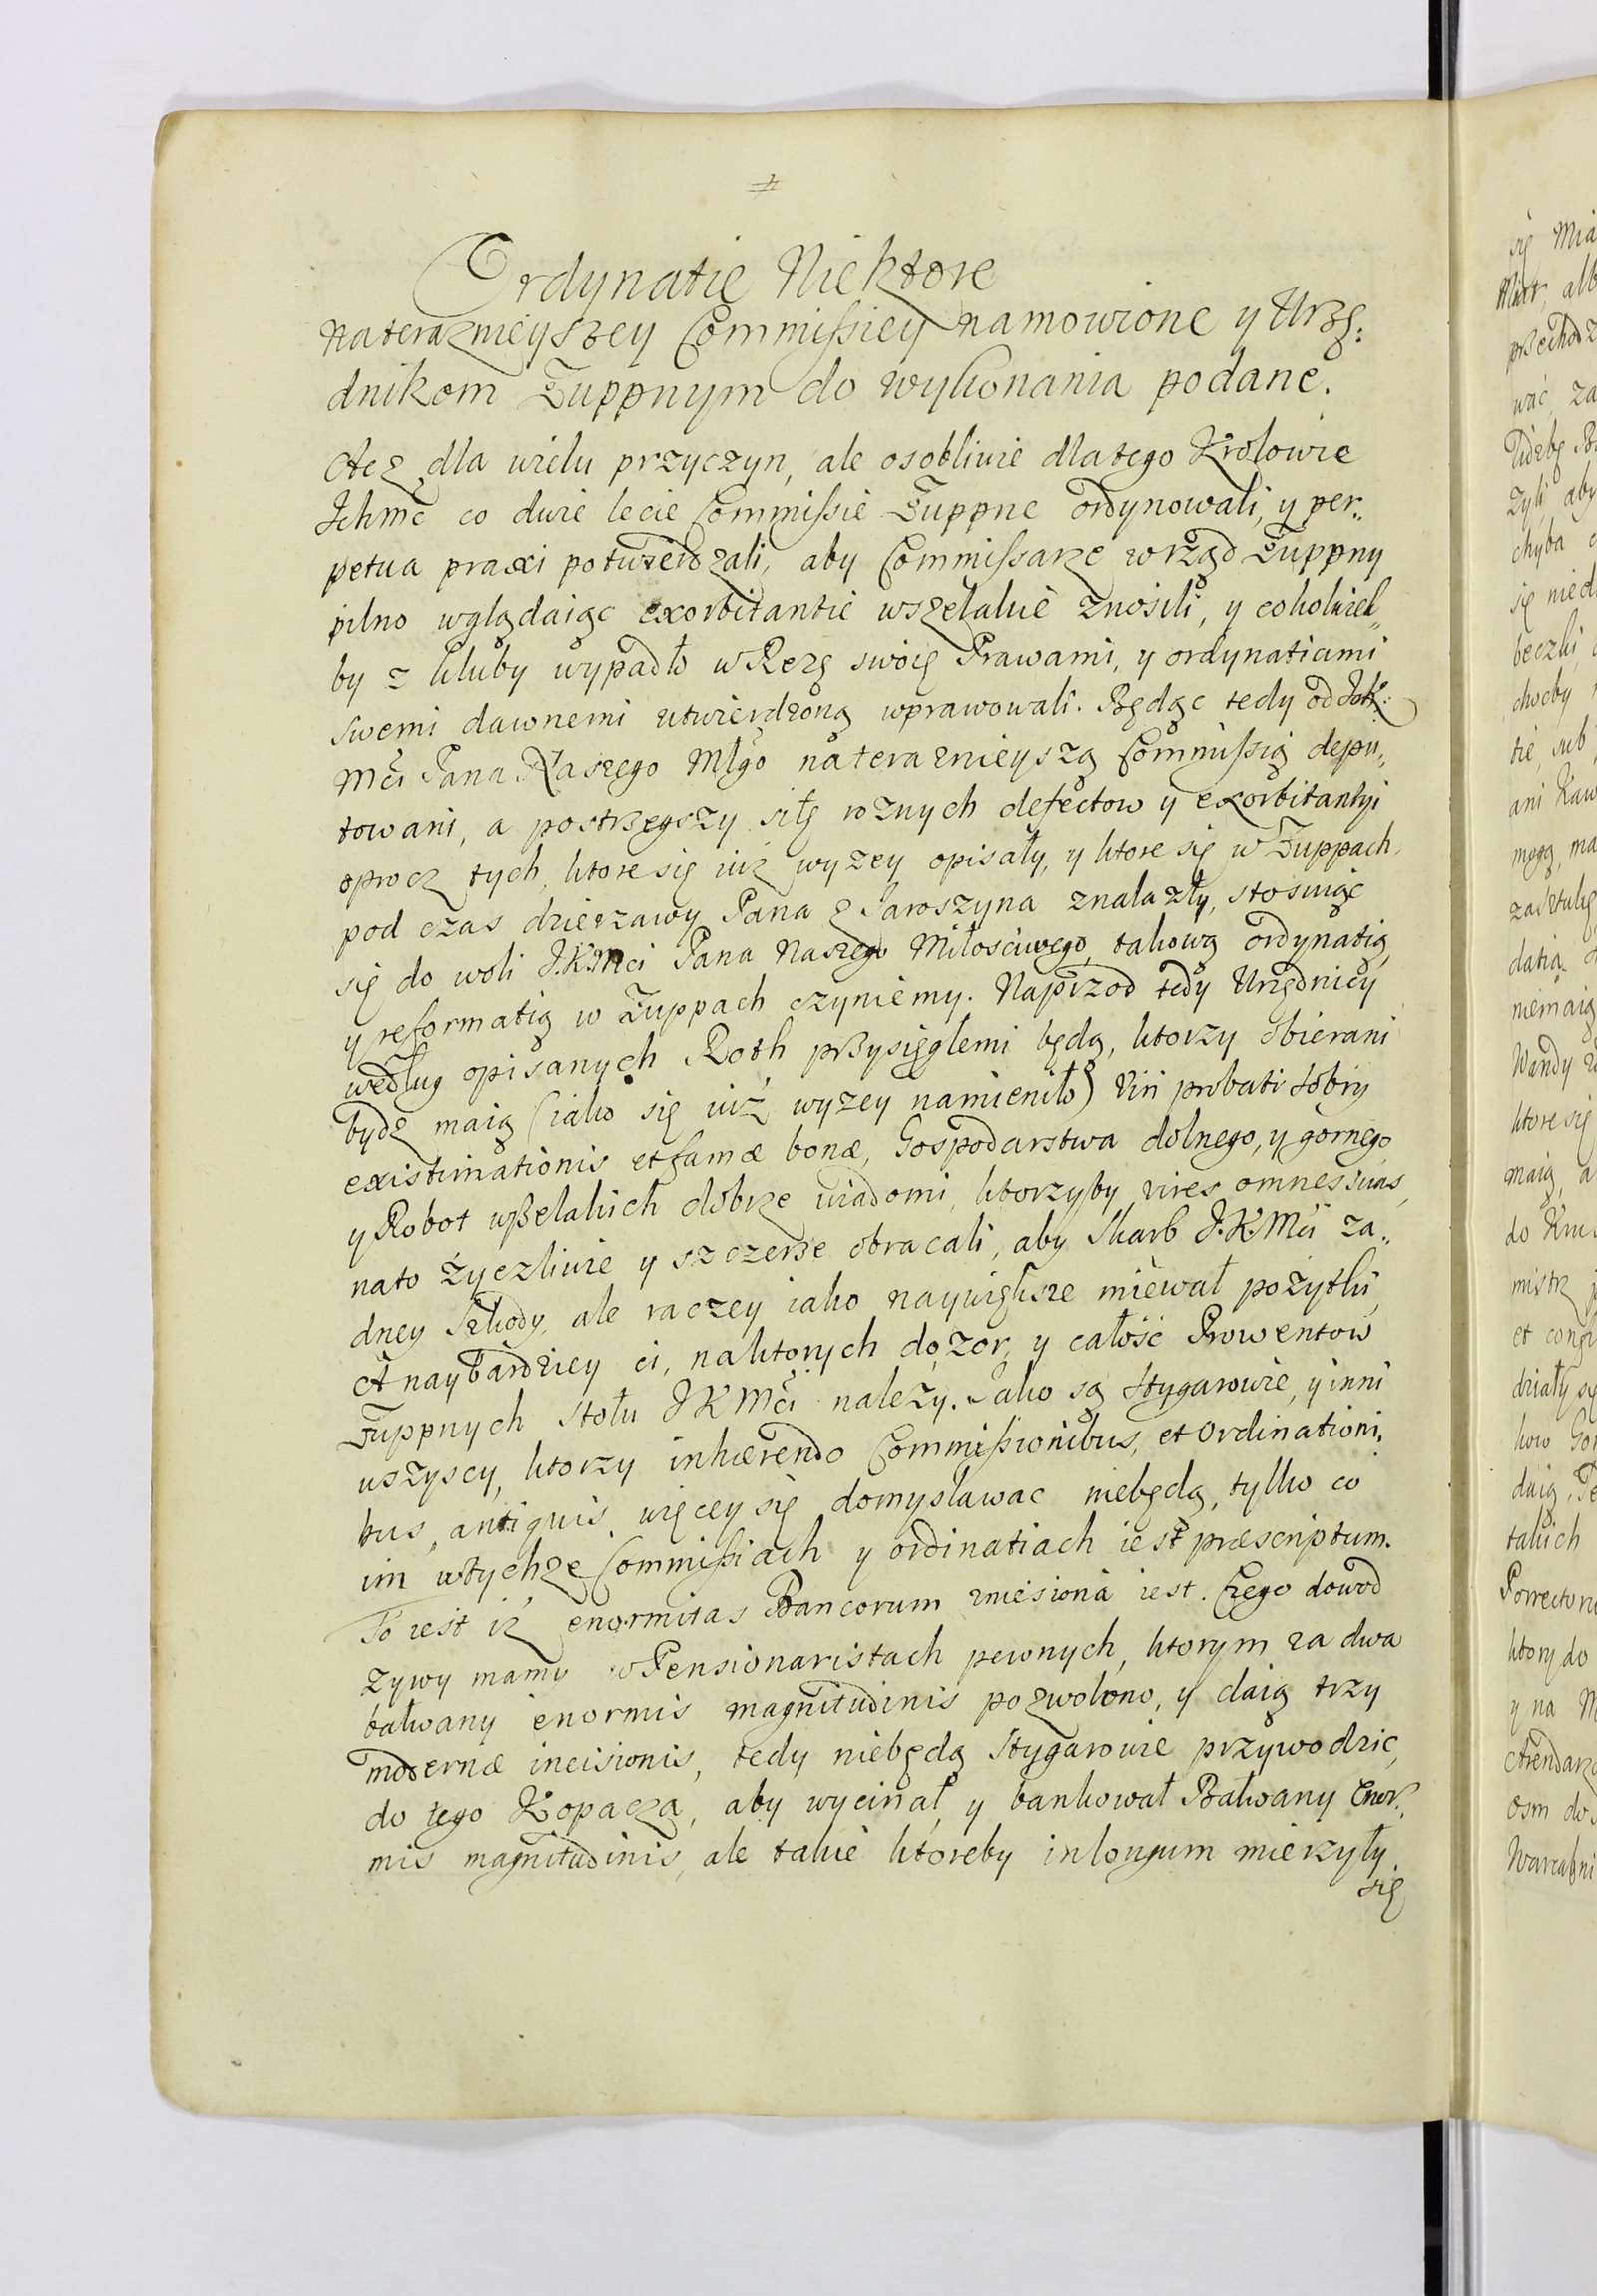 Ordynatie Niektore
Naterazniejszey Commissiey namowione y Urzę:
dnikom Żuppnym do wykonania podane.
Acz dla wielu przyczyn, ale osobliwie dlatego Krolowie
Ichmć co dwie lecie Commissie Żuppne ordynowali, y per„
petua praxi potwierdzali, aby Commissarze w rząd Żuppny
pilno wglądaiąc exorbitantie wszelakie znosili, y cokolwiek„
by z kluby wypadło w Rezę swoię Prawami, y ordynatiami
swemi dawnemi utwierdzoną wprawowali. Będąc tedy od JoK:
Mći Pana Naszego Młgo na teraznieyszą Commissią depu„
towani, a postrzegszy siłę roznych defectow y exorbitantyi
oprocz tych, ktore się iuż wyzey opisały, y ktore się w Żuppach
pod czas dzierzawy Pana z Jaroszyna znalazły, stosuiąc
się do woli J.K.Mci Pana Naszego Miłosciwego, takową ordynatią,
y reformatią w Żuppach czyniemy. Naprzod tedy Urzędnicy
według opisanych Roth przysięglemi będą, ktorzy obierani
bydz maią (iako się iuż wyzey namieniło) Viri probati dobry
existimationis et famæ bonæ, Gospodarstwa dolnego, y gornego
y Robot wszelakich dobrze wiadomi, ktorzyby vires omnes suas,
nato życzliwie y szczerze obracali, aby Skarb J.K.Mći ża„
dney szkody, ale raczey iako naywiększe miewał pożytki,
A naybardziey ci, naktorych dozor, y całość Prowentow
Żuppnych stołu J K Mći należy. Jako są Stygarowie, y inni
wszyscy, ktorzy inhærendo Commissionibus, et Ordinationi„
bus antiquis więcey się domyslawac niebędą, tylko co
im wtychze Commissiach y ordinatiach iest præscriptum.
To iest iż enormitas Bancorum zniesiona iest. Czego dowod
zywy mamy w Pensionaristach pewnych, ktorym za dwa
bałwany enormis magnitudinis pozwolono, y daią trzy
modernæ incisionis, tedy niebędą Stygarowie przywodzic,
do tego Kopacza, aby wycinał, y bankował Bałwany Enor„
mis magnitudinis, ale takie ktoreby inlongum mierzyły
się